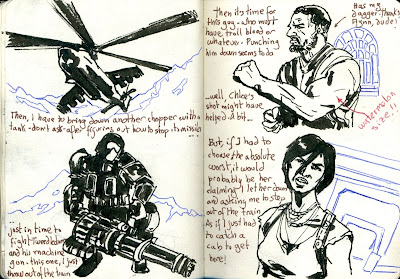 Then, I have to bring down another chopper with a
tank - don't ask - after figuring out how to stop its missile
...just in time to
fight Tweedledum
and his machine
gun - this one, I just
throw out of the train
Then it's time for
this guy - who must
have troll blood or
whatever - Punching
him down seems to do
...well, Chloe's
shot might have
helped a bit...
Has my
dagger - thanks
Flynn, dude!
watermelon
size!!
But, if I had to
choose the absolute
worst, it would
probably be her
claiming I let her down
and asking me to stop
out of the train
As if I just had
to catch a
cab to get
here!